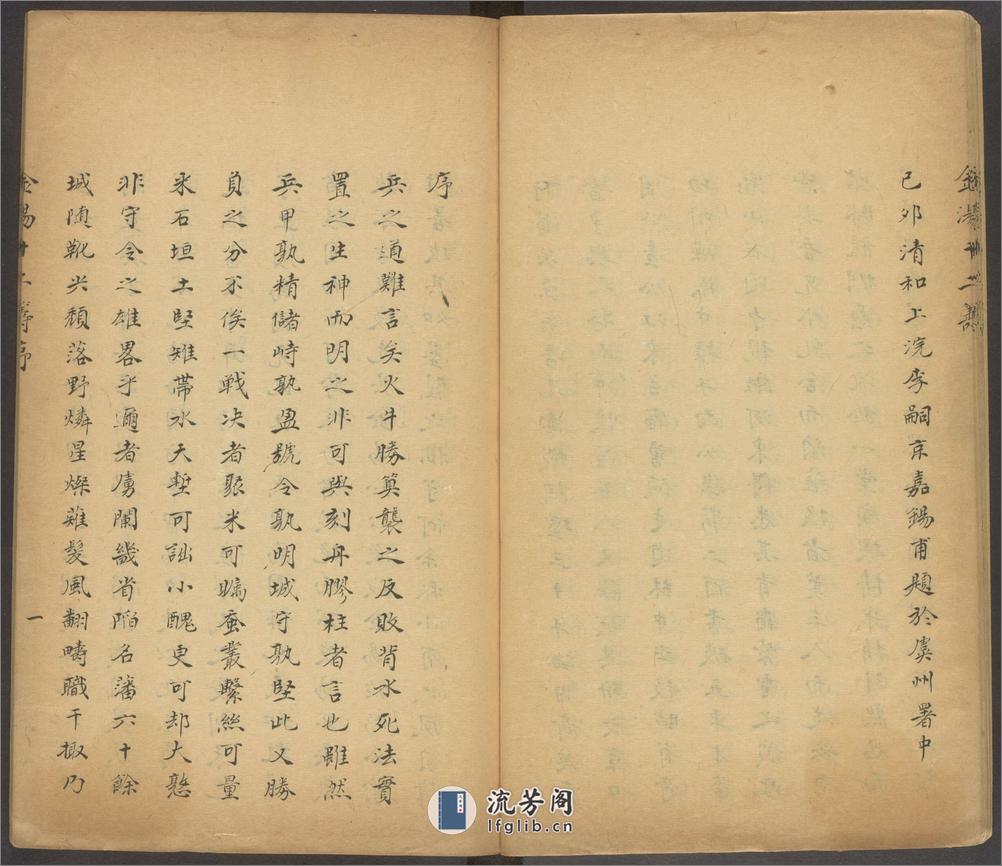 己卯清和上浣李嗣京嘉錫甫題於虞州署中
序
兵之道難言矣火牛勝莫襲之反敗背水死法實
置之生神而明之非可與刻舟膠柱者言也雖然
兵甲孰精儲峙孰盈號令孰明城守孰堅此又勝
負之分不俟戰决者聚米可矚蚕叢繫絲可量
米石垣土堅雉帶水天塹可詘小醜更可却大憝
非守令之雄畧乎邇者虜闌畿省陷名藩六十餘
城随靴尖頹落野燐星燦雞髮風翻疇職干掫乃
一
流芳阁
lfglib.cn